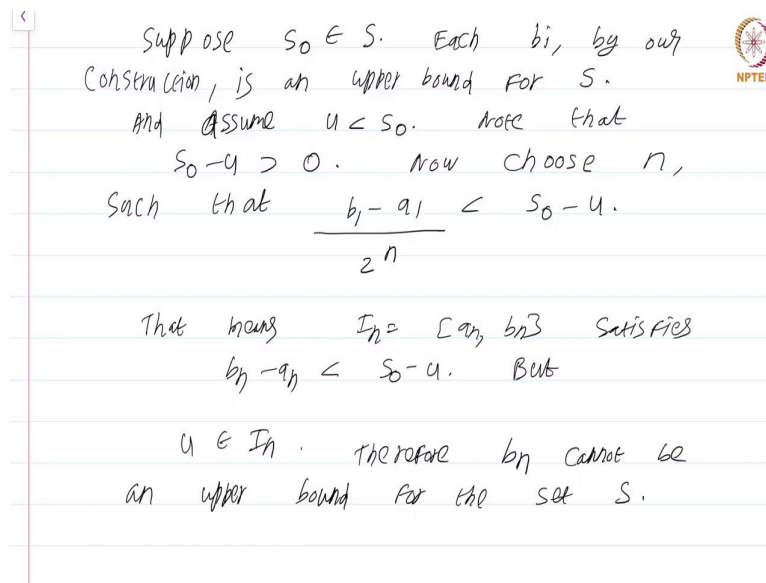 Suppose S₀ ∈ S. Each bi, by our
NPTEL
Construction, is an upper bound for S.
And assume u < S₀. Note that
S₀ - u > 0. Now choose n,
Such that b₁ - a₁ / 2ⁿ < S₀ - u.
That means Iₙ = [aₙ, bₙ] satisfies
bₙ - aₙ < S₀ - u. But
u ∈ Iₙ. Therefore bₙ cannot be
an upper bound for the set S.